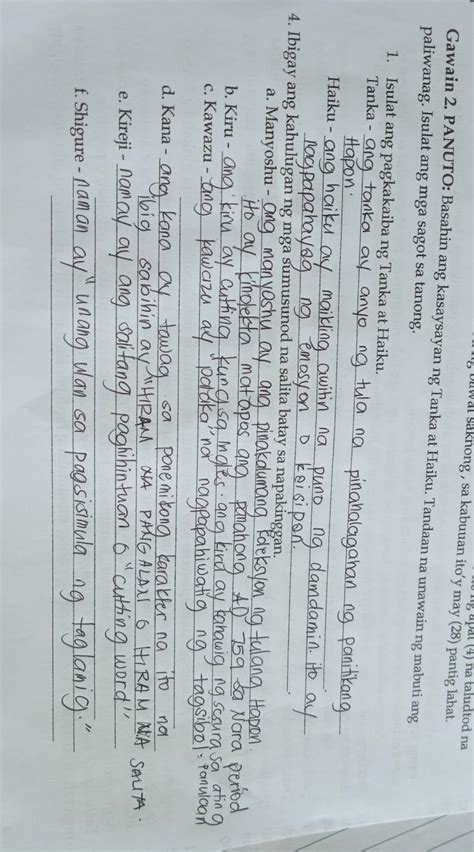 apat (4) na taludtod na
saknong, sa kabuuan ito'y may (28) pantig lahat.
Gawain 2. PANUTO: Basahin ang kasaysayan ng Tanka at Haiku. Tandaan na unawain ng mabuti ang
paliwanag. Isulat ang mga sagot sa tanong.
1. Isulat ang pagkakaiba ng Tanka at Haiku.
Tanka - ang tanka ay anyo ng tula na pinahalagahan ng panitikang
Hapon.
Haiku - ang haiku ay maikling awitin na puno ng damdamin. ito ay
nagpapahayag ng emosyon o kaisipan.
4. Ibigay ang kahulugan ng mga sumusunod na salita batay sa napakinggan.
a. Manyoshu - ang manyoshu ay ang pinakalumang edeksyon ng tulang Hapon.
Ito ay kinolekta matapos ang panahong AD 759 sa Nara period
b. Kiru - ang kiru ay cutting kung sa ingles. ang kird ay kahawig ng sesura sa ating
c. Kawazu - ang kawazu ay palaka na nagpapahiwatig ng tagsibol. Panulaan
d. Kana - ang kana ay tawag sa ponemikong karakter na ito na
ibig sabihin ay "HIRAM NA PANGALAN O HIRAM NA SALITA.
e. Kireji - naman ay ang salitang paghihintuan o "cutting word"
f. Shigure - naman ay "unang ulan sa pagsisimula ng taglamig."